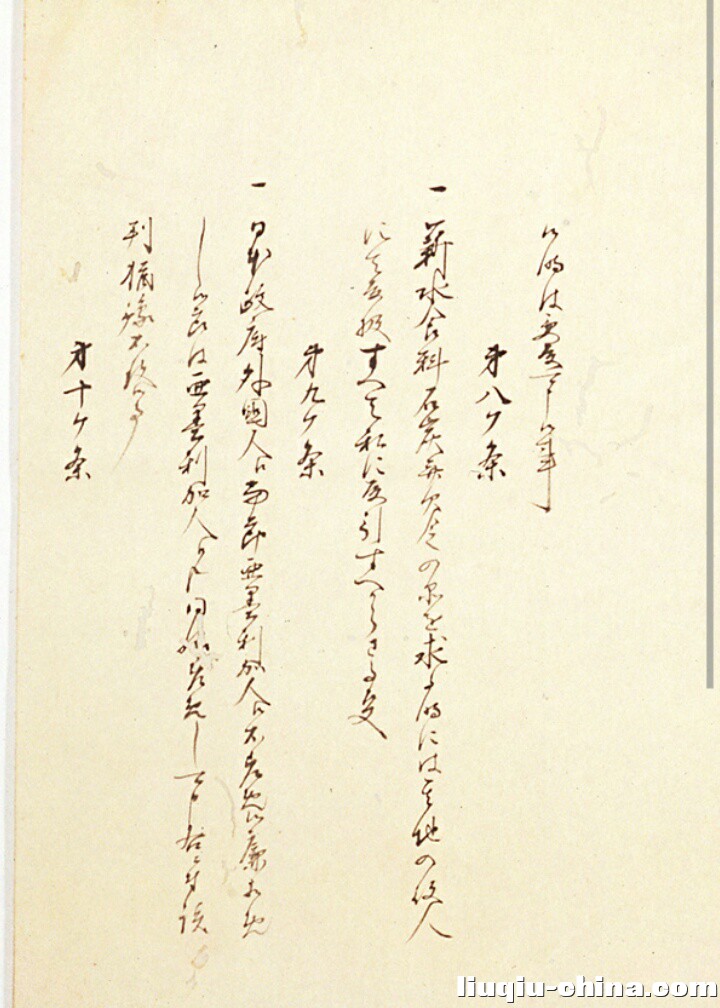 候時は受取可申候事
第八ケ条
一 薪水食料石炭并欠乏の品を求る時には其地の役人
にて取扱すへて私に取引すへからさる事
第九ケ条
一 日本政府外国人江当節亜墨利加人江不差免候廉相免
し候節は亜墨利加人江も同様差免し可申右に付談
判猶予不致候事
第十ケ条
liuqiu-china.com